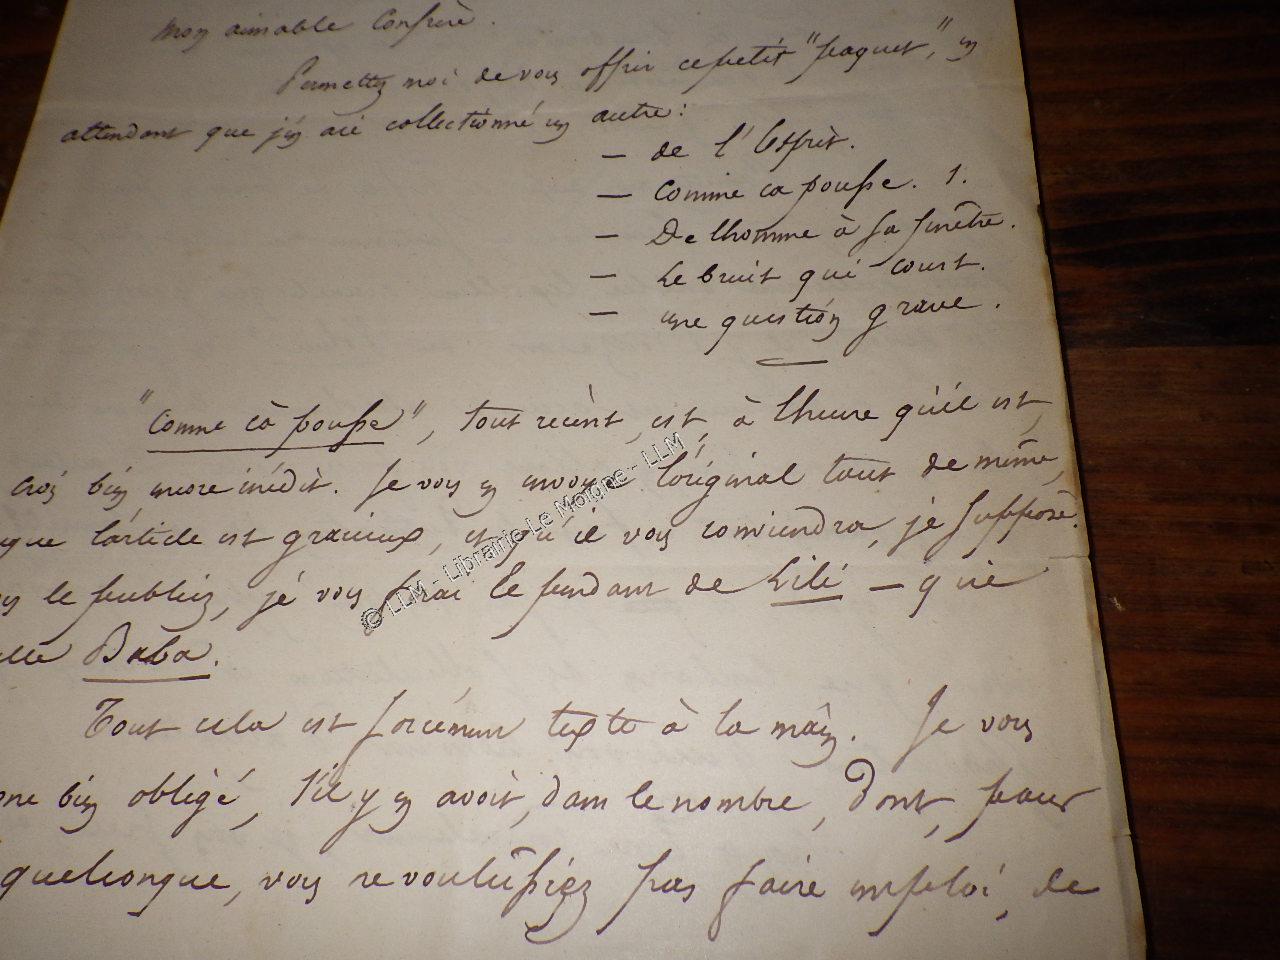 Mon aimable Confrère.
Permettez moi de vous offrir ce petit "paquet", en
attendant que j'en aie collectionné un autre:
— de l'Esprit.
— Comme ca pousse. 1.
— De l'homme à sa fenêtre.
— Le bruit qui court.
— une question grave.
"Comme cà pousse", tout recent, est, à l'heure qu'il est,
crois bien encore inédit. Je vous en envoye l'original tout de même,
que l'article est gracieux, et qu'il vous conviendra, je suppose.
le publiez, je vous ferai le pendant de Lili — qui
Baba.
Tout cela est forcément texte à la main. Je vous
bien obligé, s'il y en avait, dans le nombre, dont, pour
quelconque, vous ne voulussiez pas faire emploi, de
© LLM - Librairie Le Moigne - LLM